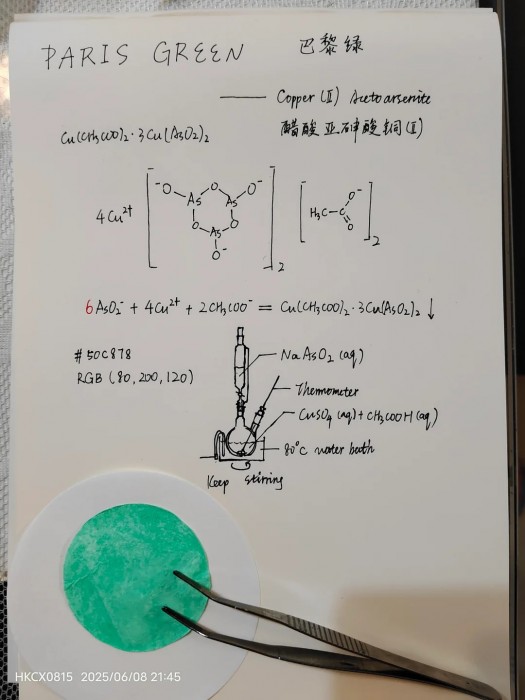 PARIS GREEN 巴黎绿
—— Copper (II) Acetoarsenite
醋酸亚砷酸铜(II)
Cu(CH₃COO)₂·3Cu(AsO₂)₂
4Cu²⁺ [⁻O As O As O⁻ O O As O⁻]₂ [H₃C-C O⁻ O]⁻₂
6AsO₂⁻ + 4Cu²⁺ + 2CH₃COO⁻ = Cu(CH₃COO)₂·3Cu(AsO₂)₂↓
#50C878
RGB (80,200,120)
NaAsO₂ (aq)
Thermometer
CuSO₄ (aq) + CH₃COOH (aq)
80°C water bath
Keep stirring
HKCX0815 2025/06/08 21:45